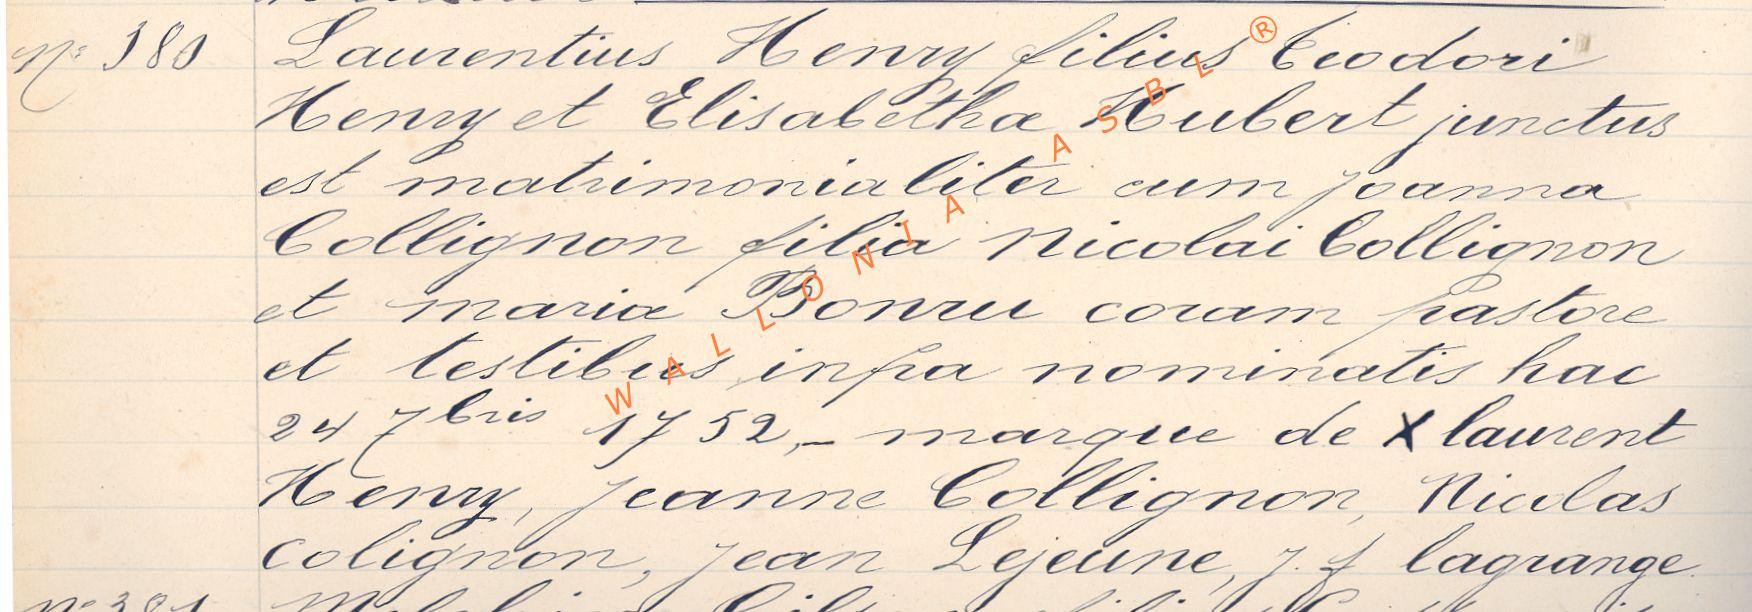 N° 380 Laurentius Henry filius Teodori
Henry et Elisabetha Hubert junctus
est matrimonialiter cum joanna
Collignon filia Nicolai Collignon
et maria Bonru coram pastore
et testibus infra nominatis hac
24 7bris 1752,- marque de X laurent
Henry, jeanne Collignon, Nicolas
colignon, jean Lejeune, j. f lagrange.
N° 381
WALLONIA ASBL ®